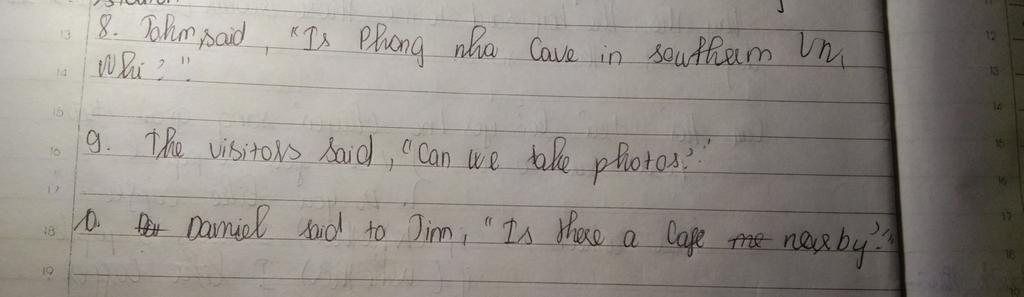 8. John, said, "Is Phong nha Cave in southern Vn,
Nhi?"
9. The visitors said, "Can we take photos?"
10. Daniel said to Jim, "Is there a Cafe nearby?"